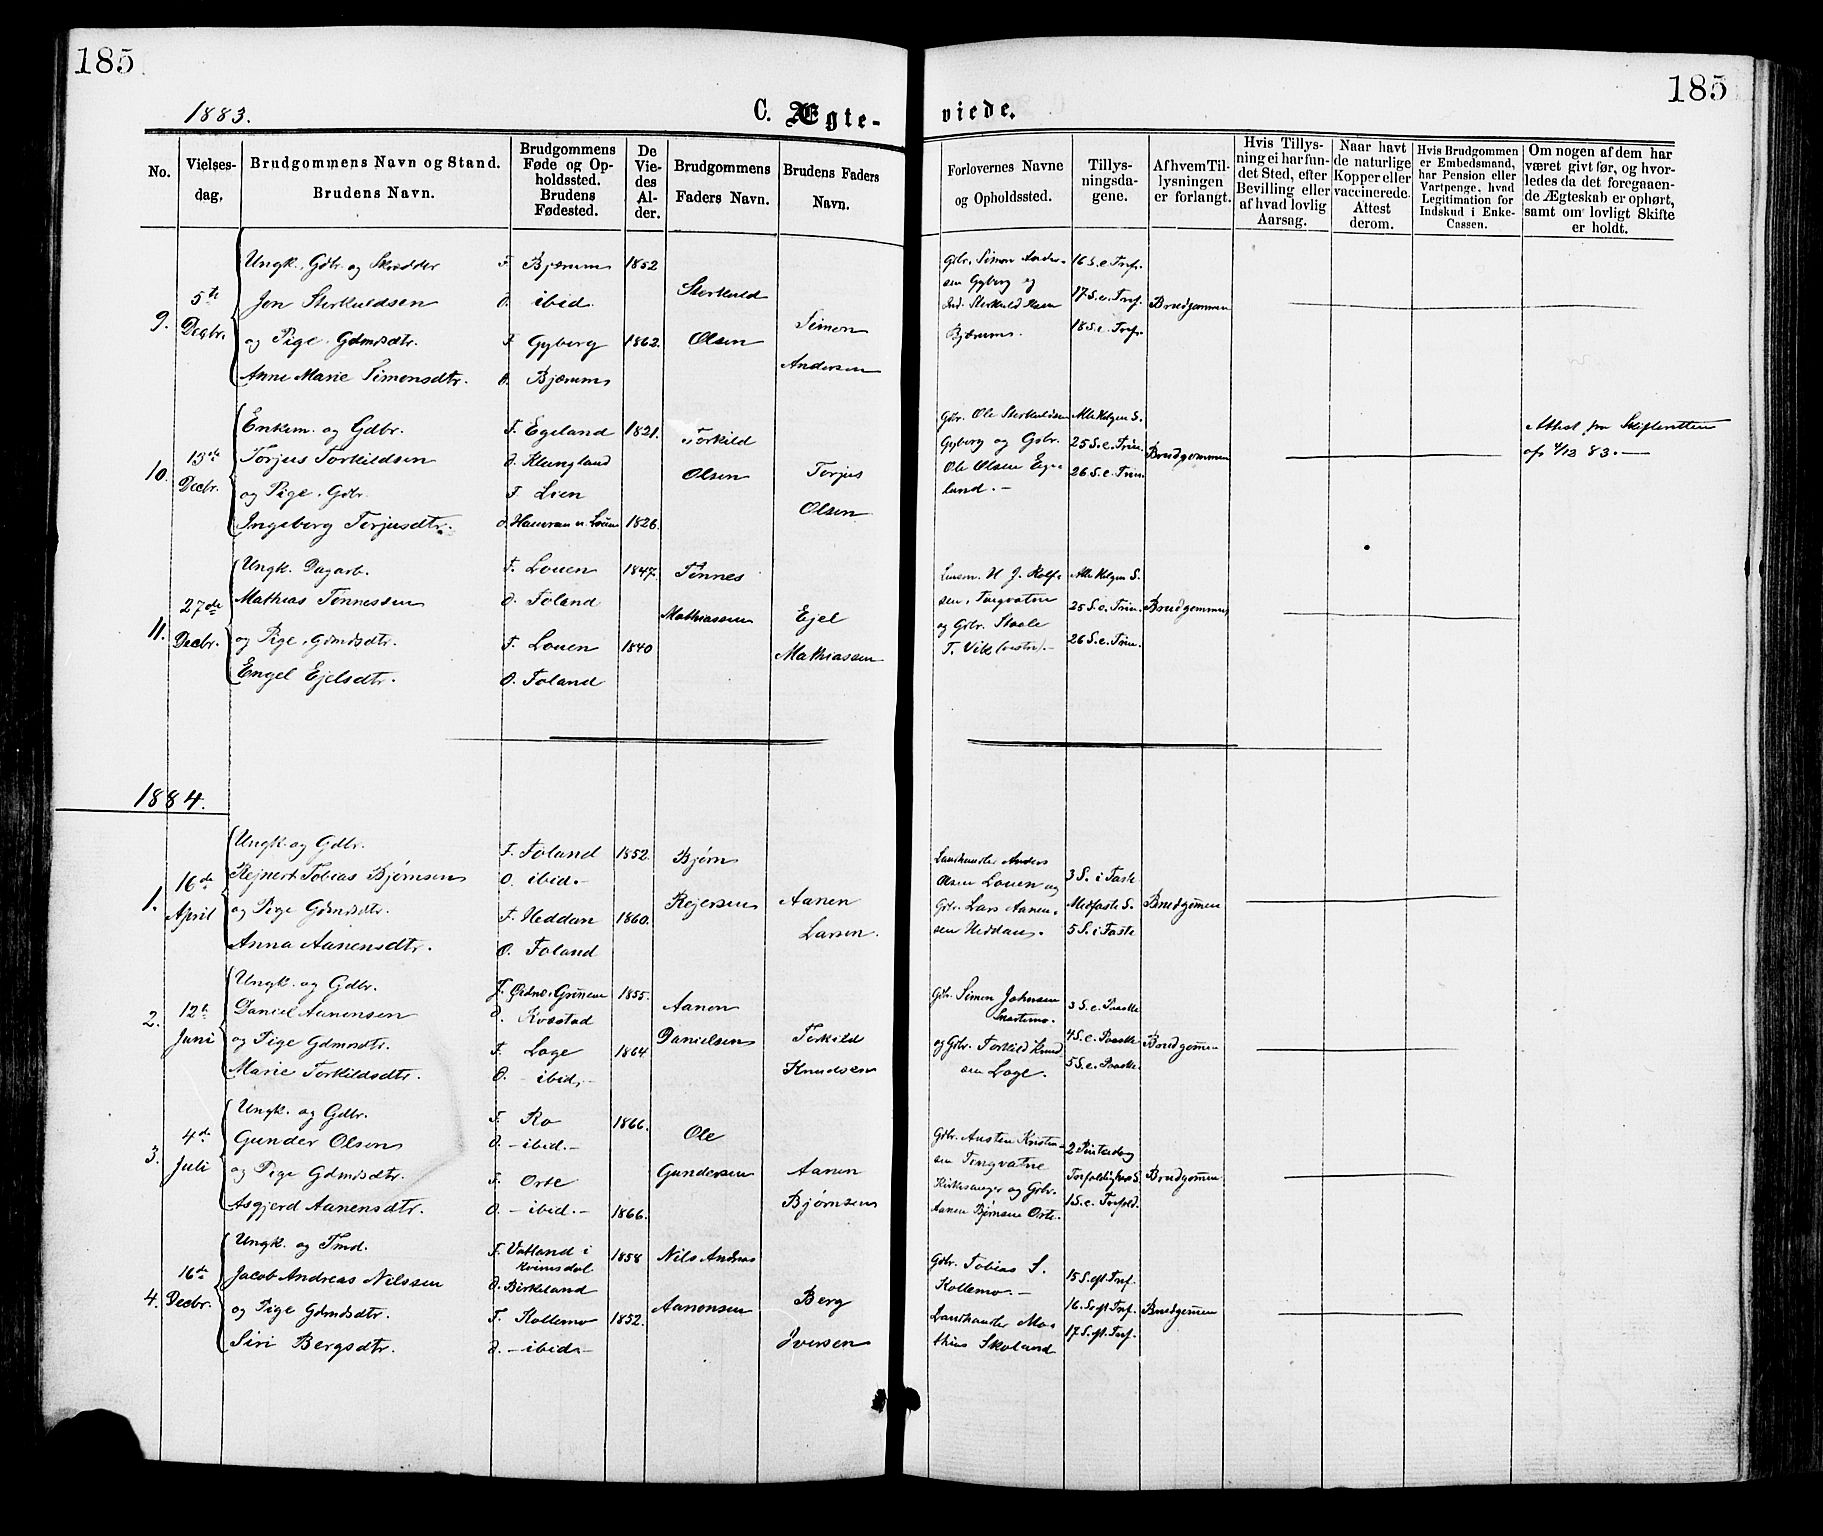 185
185
1883.
C. Ægte-
viede.
No.
Vielses-
dag.
Brudgommens Navn og Stand.
Brudens Navn.
Brudgommens
Føde og Op-
holdssted.
Brudens
Fødested.
De
Vie-
des
Al-
der.
Brudgommens
Faders Navn.
Brudens Faders
Navn.
Forlovernes Navne
og Opholdssted.
Tillys-
ningsda-
gene.
Af hvem Til-
lysningen
er forlangt.
Hvis Tillys-
ning ei har fun-
det Sted, efter
Bevilling eller
af hvad lovlig
Aarsag.
Naar havt
de naturlige
Kopper eller
vaccinerede.
Attest
derom.
Hvis Brudgommen
er Embedsmand,
har Pension eller
Vartpenge, hvad
Legitimation for
Indskud i Enke-
Cassen.
Om nogen af dem har
været givt før, og hvor-
ledes da det foregaaen-
de Ægteskab er ophørt,
samt om lovligt Skifte
er holdt.
9.
5te
Decbr.
Ungk. Gdbr. og Skrædder
Jon Sterkuldsen
og Pige, Gdmdsdtr.
Anne Marie Simonsdtr.
F. Bjærum
O. ibid.
F. Gyberg
O. Bjærum
1852
1862.
Sterkuld
Olsen
Simon
Andersen
Gbr. Simon Ander-
sen Gyberg og
Ind. Sterkuld Olsen
Bjærum.
16 S. e. Tref.
17 S. e. Tref.
18 S. e. Tref.
Brudgommen
10.
13de
Decbr.
Enkem. og Gdbr.
Torjus Torkildsen
og Pige, Gdbr.
Ingeborg Torjusdtr.
F. Egeland
O. Klungland
F. Lien
O. Hamran n. Louen
1821.
1826.
Torkild
Olsen
Torjus
Olsen
Gbr. Ole Sterkuldsen
Gyberg og Gbr.
Ole Olsen Ege-
land. —
Alle Helgen S.
25 S. e. Trin.
26 S. e. Trin.
Brudgommen
Attest fra Skifteretten
af 4/12 83. —
11.
27de
Decbr.
Ungk. Dagarb.
Mathias Tønnessen
og Pige, Gdmdsdtr.
Engel Ejelsdtr.
F. Louen
O. Foland
F. Louen
O. Foland
1847.
1840
Tønnes
Mathiassen
Ejel
Mathiassen
Lensm. H. J. Rolf-
sen, Tingvatne
og Gbr. Staale
T. Vik (vestre). —
Alle Helgen S.
25 S. e. Trin.
26 S. e. Trin.
Brudgommen
1884.
1.
16de
April
Ungk. og Gdbr.
Rejnert Tobias Bjørnsen
og Pige Gdmdsdtr.
Anna Aanensdtr.
F. Foland
O. ibid. —
F. Heddan
O. Foland
1852
1860.
Bjørn
Rejersen
Aanen
Larsen.
Landhandler Anders
Olsen Louen og
Gbr. Lars Aanen-
sen Heddan.
3 S. i Faste
Midfaste S.
5 S. i Faste
Brudgomen
2.
12te
Juni
Ungk. og Gdbr.
Daniel Aanensen
og Pige Gdmdsdtr.
Marie Torkildsdtr.
F. Ørdnes Grinem
O. Kvæstad
F. Loge
O. — ibid. —
1855.
1864
Aanen
Danielsen
Torkild
Knudsen
Gbr. Simon Johnsen
Skartemo.
og Gbr. Torkild Knud-
sen Loge.
3 S. e. Paaske
4 S. e. Paaske
5 S. e. Paaske.
Brudgomen
3.
4de
Juli
Ungk. og Gdbr.
Gunder Olsen
og Pige Gdmdsdtr.
Asgjerd Aanensdtr.
F. Ro
O. — ibid. —
F. Orte
O. — ibid. —
1866.
1866.
Ole
Gundersen
Aanen
Bjørnsen
Gbr. Austen Kristen-
sen Tingvatne
Kirkesanger og Gbr.
Aanen Bjørnsen Orte.
2 Pintsedag
Trefoldigheds S.
1 S. e. Trefold.
Brudgomen
4.
16de
Decbr.
Ungk. og Tmd.
Jacob Andreas Nilssen
og Pige Gdmdsdtr.
Siri Bergsdtr.
F. Vatland i
Kvinesdal
O. Birkeland
F. Kollemo
O. — ibid. —
1858
1852.
Nils Andreas
Aanonsen
Berg
Iversen
Gbr. Tobias S.
Kollemo. —
Landhandler Ma-
thias Skoland
15 S. eft. Tref.
16. S. eft Tref.
17 S. eft. Tref.
Brudgomen